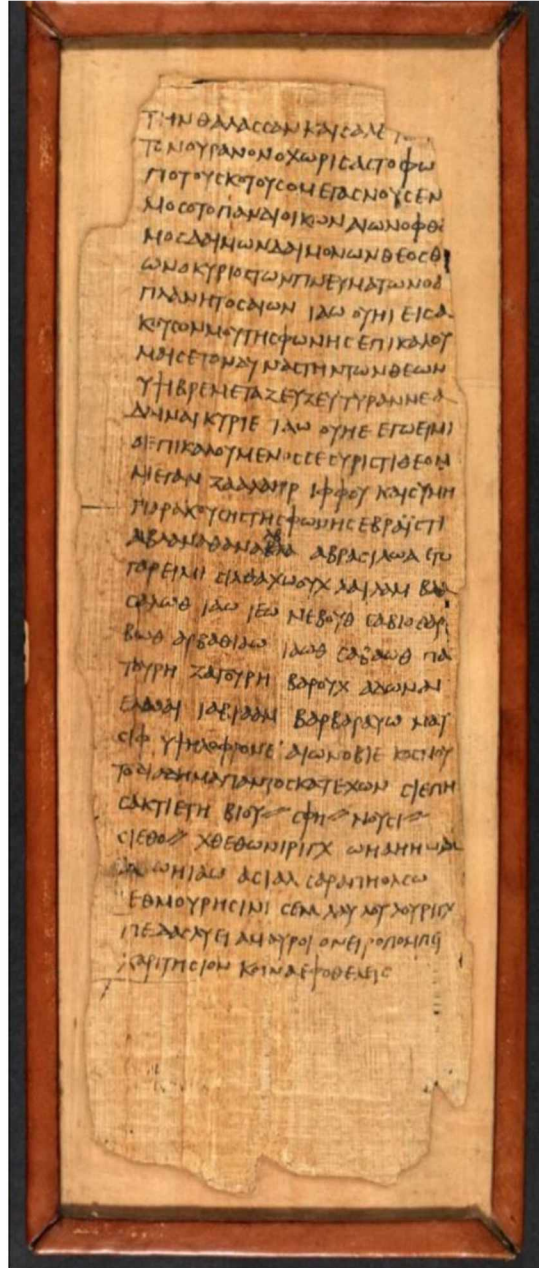 ΤΗΝΘΑΛΑΣΣΑΝΚΑΙΣΑΛΕ
ΤΟΝΟΥΡΑΝΟΝΟΧΩΡΙΣΑΣΤΟΦΩ
ΠΟΤΟΥΣΚΟΤΟΥΣΟΜΕΓΑΣΝΟΥΣΕΝ
ΝΟΜΟΣΟΤΟΠΑΝΔΙΟΙΚΩΝΑΙΩΝΟΦΘΑ
ΜΟΣΔΑΙΜΩΝΔΑΙΜΟΝΩΝΘΕΟΣΘ
ΩΝΟΚΥΡΙΟΣΤΩΝΠΝΕΥΜΑΤΩΝΟΑ
ΠΛΑΝΗΤΟΣΑΙΩΝ ΙΑΩ ΟΥΗΙ ΕΙΣΑ
ΚΟΥΣΟΝΜΟΥΤΗΣΦΩΝΗΣ ΕΠΙΚΑΛΟΥ
ΜΑΙΣΕΤΟΝΔΥΝΑΣΤΗΝΤΩΝΘΕΩΝ
ΥΨΙΒΡΕΜΕΤΑΖΕΥΖΕΥΤΥΡΑΝΝΕΑ
ΔΩΝΑΙ ΚΥΡΙΕ ΙΑΩ ΟΥΗΕ ΕΓΩΕΙΜΙ
ΟΕΠΙΚΑΛΟΥΜΕΝΟΣΣΕΣΥΡΙΣΤΙΘΕΟΝ
ΜΕΓΑΝ ΖΑΑΛΑΗΡ ΙΦΦΟΥ ΚΑΙΣΥΜΗ
ΠΑΡΑΚΟΥΣΗΣΤΗΣΦΩΝΗΣ ΕΒΡΑΪΣΤΙ
ΑΒΛΑΝΑΘΑΝΑΛΒΑ ΑΒΡΑΣΙΛΩΑ ΕΓΩ
ΓΑΡΕΙΜΙ ΣΙΛΘΑΧΩΟΥΧ ΛΑΙΛΑΜ ΒΛΑ
ΣΑΛΩΘ ΙΑΩ ΙΕΩ ΝΕΒΟΥΘ ΣΑΒΙΟΘΑΡ
ΒΩΘ ΑΡΒΑΘΙΑΩ ΙΑΩΘ ΣΑΒΑΩΘ ΠΑ
ΤΟΥΡΗ ΖΑΓΟΥΡΗ ΒΑΡΟΥΧ ΑΔΩΝΑΙ
ΕΛΩΑΙ ΙΑΒΡΑΑΜ ΒΑΡΒΑΡΑΥΩ ΝΑΥ
ΣΙΦ ΥΨΗΛΟΦΡΟΝΕ ΑΙΩΝΟΒΙΕ ΚΟΣΜΟΥ
ΤΟΔΙΑΔΗΜΑΠΑΝΤΟΣΚΑΤΕΧΩΝ ΣΙΕΠΗ
ΣΑΚΤΙΕΤΗ ΒΙΟΥ// ΣΦΗ// ΝΟΥΣΙ//
ΣΙΕΘΟ// ΧΘΕΘΩΝΙΡΙΓΧ
ΩΗΙΑΩ ΑΣΙΑΛ ΣΑΡΑΠΗΟΛΣΩ
ΕΘΜΟΥΡΗΣΙΝΙ ΣΕΜ ΛΑΥ ΛΟΥ ΛΟΥΡΙΓΧ
ΟΝΕΙΡΟΠΟΜΠΕΙ
ΧΑΡΙΤΗΣΙΟΝ